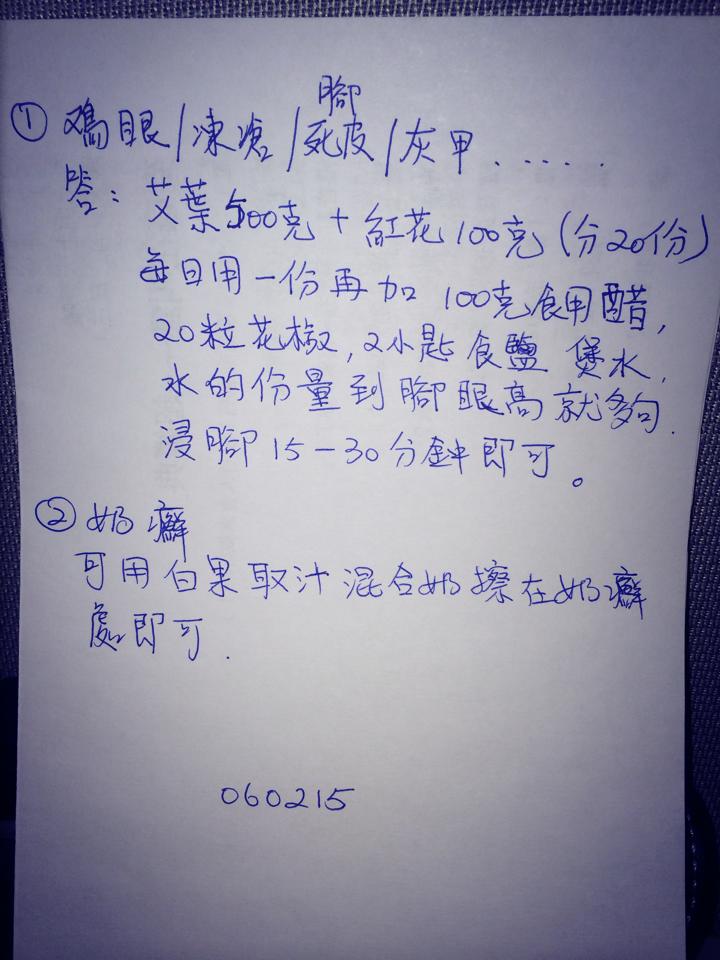 ① 鷄眼/凍滄/腳死皮/灰甲......
答：艾葉500克+紅花100克(分20份)
每日用一份再加 100克食用醋,
20粒花椒,2小匙食鹽 煲水,
水的份量到腳眼高就夠.
浸腳15-30分鈡即可。
② 奶癬
可用白果取汁混合奶擦在奶癬
處即可.
060215